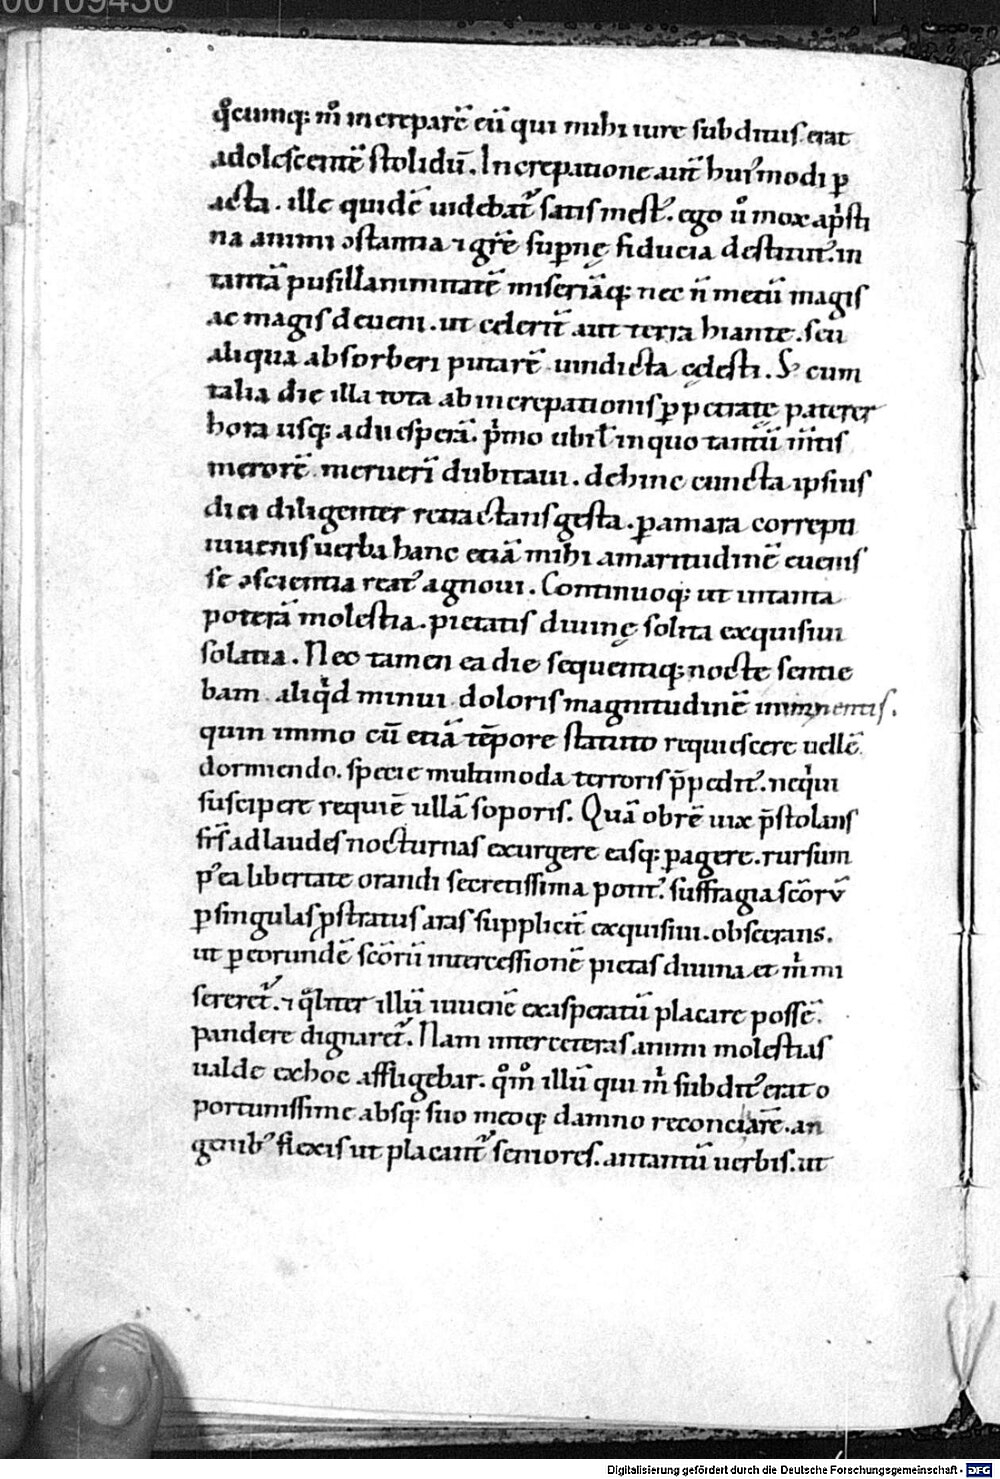 00109430
q̊cumq; m̊ increparē eū qui mihi iure subditus erat
adolescentē stolidū. Increpatione aut̄ huiꝰmodi ꝑ
acta. ille quidē uidebat᷑ satis mestꝰ. ego ů mox apͥsti
na animi ↄstantia ⁊ grē supnę fiducia destitutꝰ. in
tantā pusillanimitatē miseriāq; nec n̄ metū magis
ac magis deueni. ut celerit̄ aut terra hiante. seu
aliqua absorberi putarē uindicta cęlesti. S; cum
talia die illa tota ab increpationis ꝑpetratę paterer
hora usq; ad uesperā. pͥmo ubi ł in quo tantū m̄tis
merorē meruerī dubitaui. dehinc cuncta ipsius
diei diligenter retractans gesta. ꝑ amara correpti
iuuenis uerba hanc etiā mihi amaritudinē euenis
se ↄscientia reatꝰ agnoui. Continuoq; ut in tanta
poterā molestia. pietatis diuinę solita exquisiui
solatia. Nec tamen ea die sequentiq; nocte sentie
bam aliqͥd minui doloris magnitudinē imminentis.
quin immo cū etiā tēpore statuto requiescere uellē
dormiendo. specie multimoda terroris p̄peditꝰ. neqͥui
suscipere requiē ullā soporis. Quā obrē uix p̄stolans
frs̄ ad laudes nocturnas exurgere easq; ꝑagere. rursum
pꝰ ea libertate orandi secretissima potitꝰ. suffragia scōrū
ꝑ singulas ꝓstratus aras supplicit̄ exquisiui. obsecrans.
ut ꝑ eorundē scōrū intercessionē pietas diuina et m̊ mi
sereret᷑. ⁊ qͣliter illū iuuenē exasperatū placare possē.
pandere dignaret᷑. Nam inter ceteras animi molestias
ualde ex hoc affligebar. qm̊ illū qui mͥ subditꝰ erat o
portunissime absq; suo meoq; damno reconciarē. an
genibꝰ flexis ut placant᷑ seniores. an tantū uerbis. ut
Digitalisierung gefördert durch die Deutsche Forschungsgemeinschaft - DFG